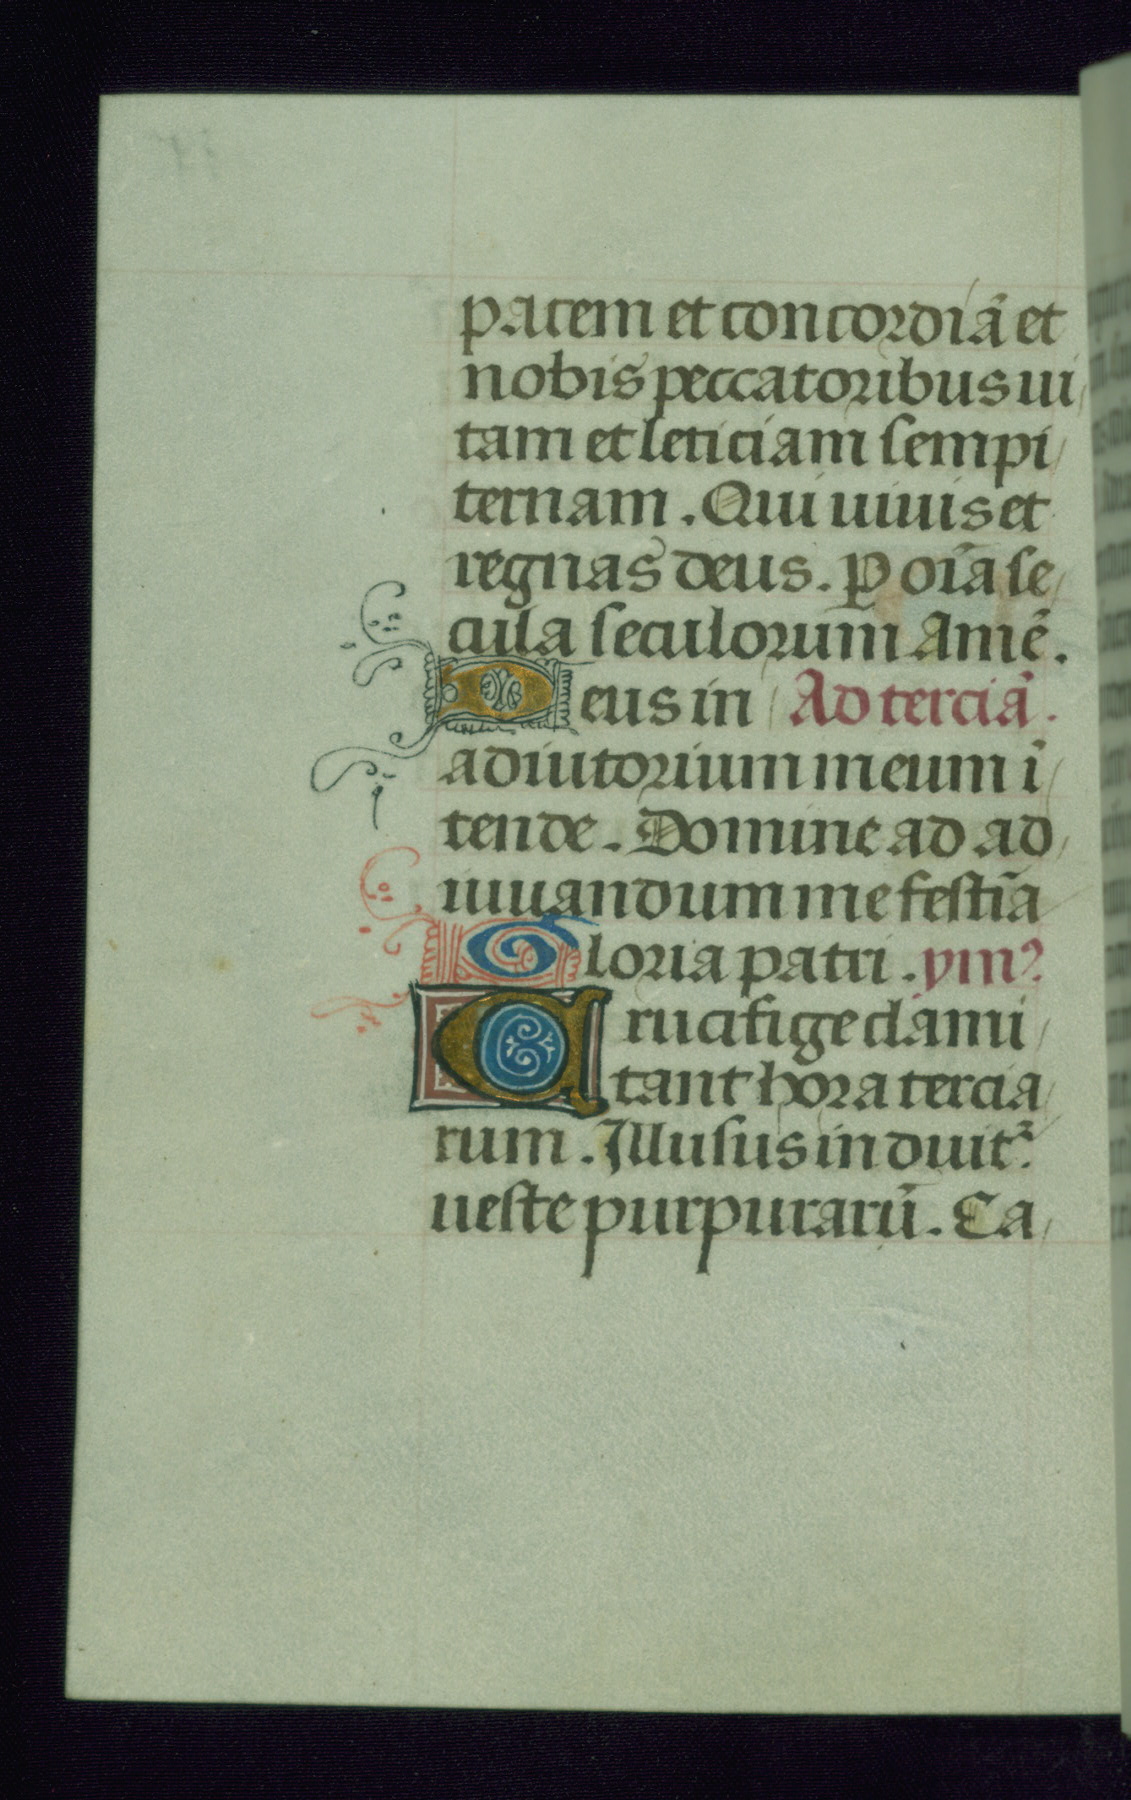 pacem et concordiā et
nobis peccatoribus ui
tam et leticiam sempi
ternam. Qui uiuis et
regnas deus. P oīa se
cula seculorum Amē.
Deus in Ad terciā.
adiutorium meum ī
tende. Domine ad ad
iuuandum me festīa
Gloria patri. ymꝰ
Crucifige clami
tant hora tercia
rum. Illusus induit᷑
ueste purpurarū. Ca